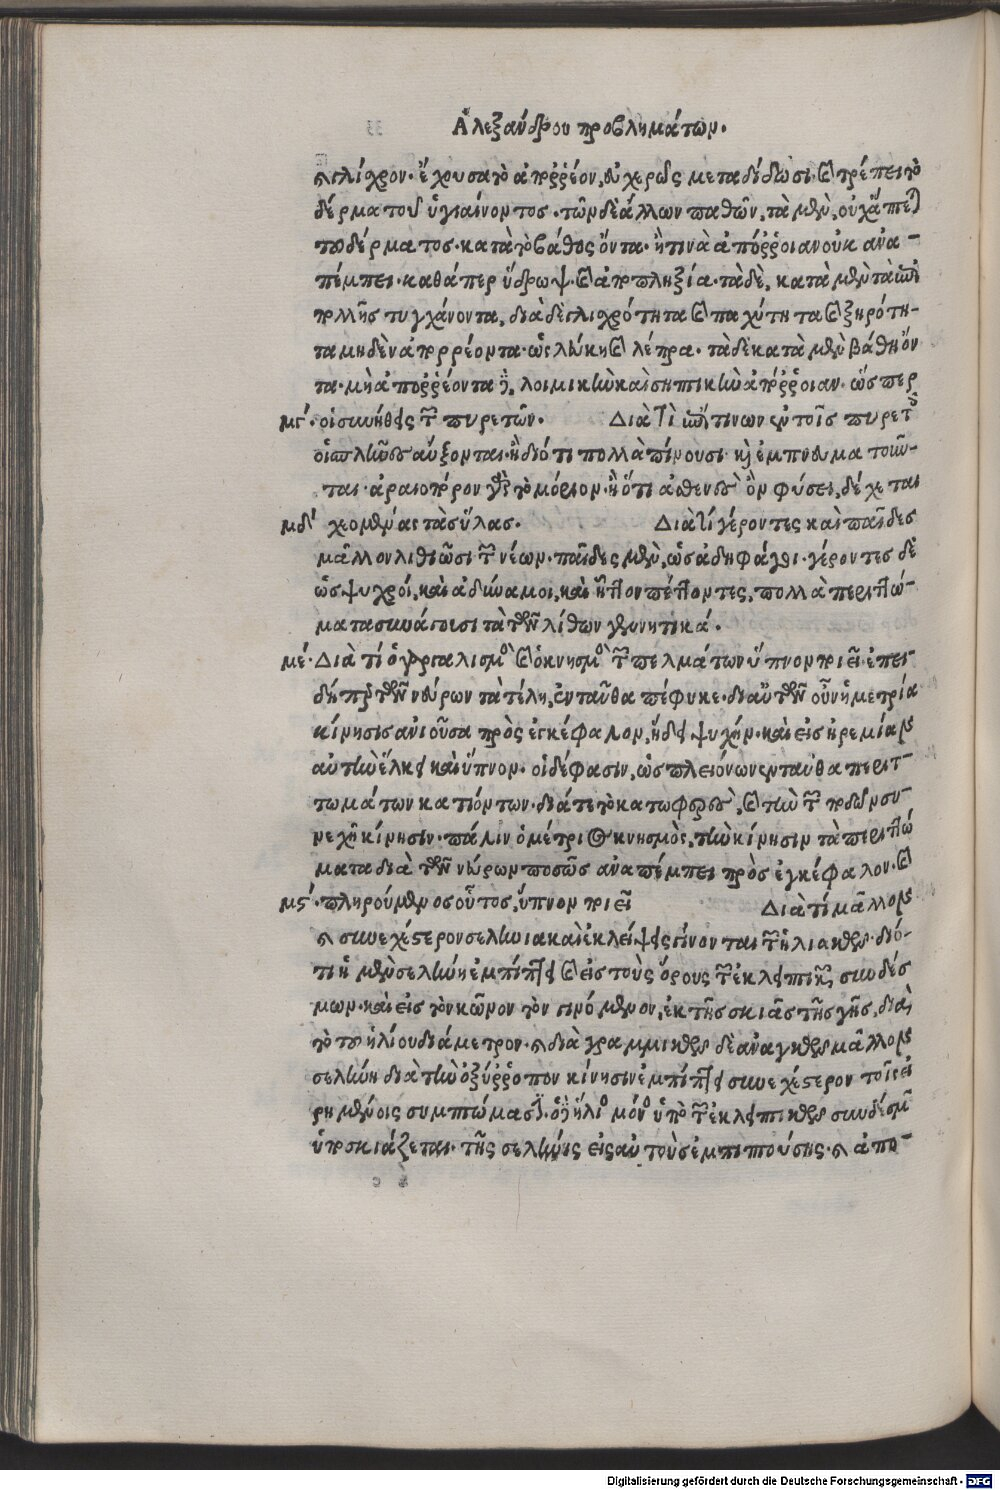 Ἀλεξάνδρου προβλημάτων.
γλίσχρον. ἔχουσα τὸ ἀπορρέον, εὐχερῶς μεταδίδωσι καὶ τρέπει τὸ
δέρμα τοῦ ὑγιαίνοντος. τῶν δὲ ἄλλων παθῶν, τὰ μὲν, οὐχ ἅπτεται
τοῦ δέρματος. κατὰ τὸ βάθος ὄντα. ἤ τινὰ ἀπόρροιαν οὐκ ἀνα-
πέμπει. καθάπερ ὕδρωψ. καὶ ἀποπληξία. τὰ δὲ, κατὰ μὲν τὰ ἐπι
πολῆς τυγχάνοντα, διὰ δὲ γλισχρότητα καὶ παχύτητα καὶ ξηρότη-
τα μηδὲν ἀπορρέοντα. ὡς λεύκη καὶ λέπρα. τὰ δὲ κατὰ μὲν βάθη ὄν
τα. μὴ ἀπορρέοντα δὲ, λοιμικὴν καὶ σηπτικὴν ἀπόρροιαν. ὥσπερ
μγ. οἱ συνήθεις τῶν πυρετῶν. Διὰ τί ἐπί τινων ἐν τοῖς πυρετοῖς
οἱ σπλῆνες αὔξονται. ἢ διότι πολλὰ πίνουσι. καὶ ἐμπνευματοῦν-
ται. ἀραιότερον γὰρ τὸ μόριον. ἢ ὅτι ἀσθενὲς ὂν φύσει, δέχεται
μδ χεομένας τὰς ὕλας. Διὰ τί γέροντες καὶ παῖδες
μᾶλλον λιθιῶσι τῶν νέων. παῖδες μὲν, ὡς ἀδηφάγοι. γέροντες δὲ
ὡς ψυχροί, καὶ ἀδύναμοι, καὶ ἧττον πέττοντες, πολλὰ περιττώ-
ματα συνάγουσι τὰ τῶν λίθων γεννητικά.
με. Διὰ τί ὁ γαργαλισμὸς καὶ ὁ κνησμὸς τῶν πελμάτων ὕπνον ποιεῖ. ἐπει
δήπερ τῶν νεύρων τὰ τέλη, ἐνταῦθα πέφυκε. διὰ τῶν οὖν ἡ μετρία
κίνησις ἀνιοῦσα πρὸς ἐγκέφαλον, ἥδει ψυχήν. καὶ εἰς ἠρεμίαν
αὐτὴν ἕλκει καὶ ὕπνον. οἱ δέ φασιν, ὡς πλειόνων ἐνταῦθα περιτ-
τωμάτων κατιόντων. διά τε τὸ κατωφερὲς, καὶ τὴν τῶν ποδῶν συ-
νεχῆ κίνησιν. πάλιν ὁ μέτριος κνησμὸς, τὴν κίνησιν τὰ περιττώ
ματα διὰ τῶν νεύρων ποσῶς ἀναπέμπει πρὸς ἐγκέφαλον. καὶ
μς. πληρούμενος οὗτος, ὕπνον ποιεῖ Διὰ τί μᾶλλον
συνεχέστερον σεληνιακαὶ ἐκλείψεις γίνονται τῶν ἡλιακῶν. διό-
τι ἡ μὲν σελήνη ἐμπίπτει καὶ εἰς τοὺς ὅρους τῶν ἐκλειπτικῶν, συνδέσ
μων. καὶ εἰς τὸν κῶνον τὸν γινόμενον, ἐκ τῆς σκιᾶς τῆς γῆς, διὰ
τὸ τοῦ ἡλίου διάμετρον. διὰ γραμμικῶν δὲ ἀναγκῶν μᾶλλον
σελήνη διὰ τὴν ὀξύρροπον κίνησιν ἐμπίπτει συνεχέστερον τοῖς εἰ
ρημένοις συμπτώμασι. ὁ δὲ ἥλιος μόνον ὑπὸ τῶν ἐκλειπτικῶν συνδέσμων
ὑποσκιάζεται. τῆς σελήνης εἰς αὐτοὺς ἐμπιπτούσης. ἀπο-
Digitalisierung gefördert durch die Deutsche Forschungsgemeinschaft - DFG